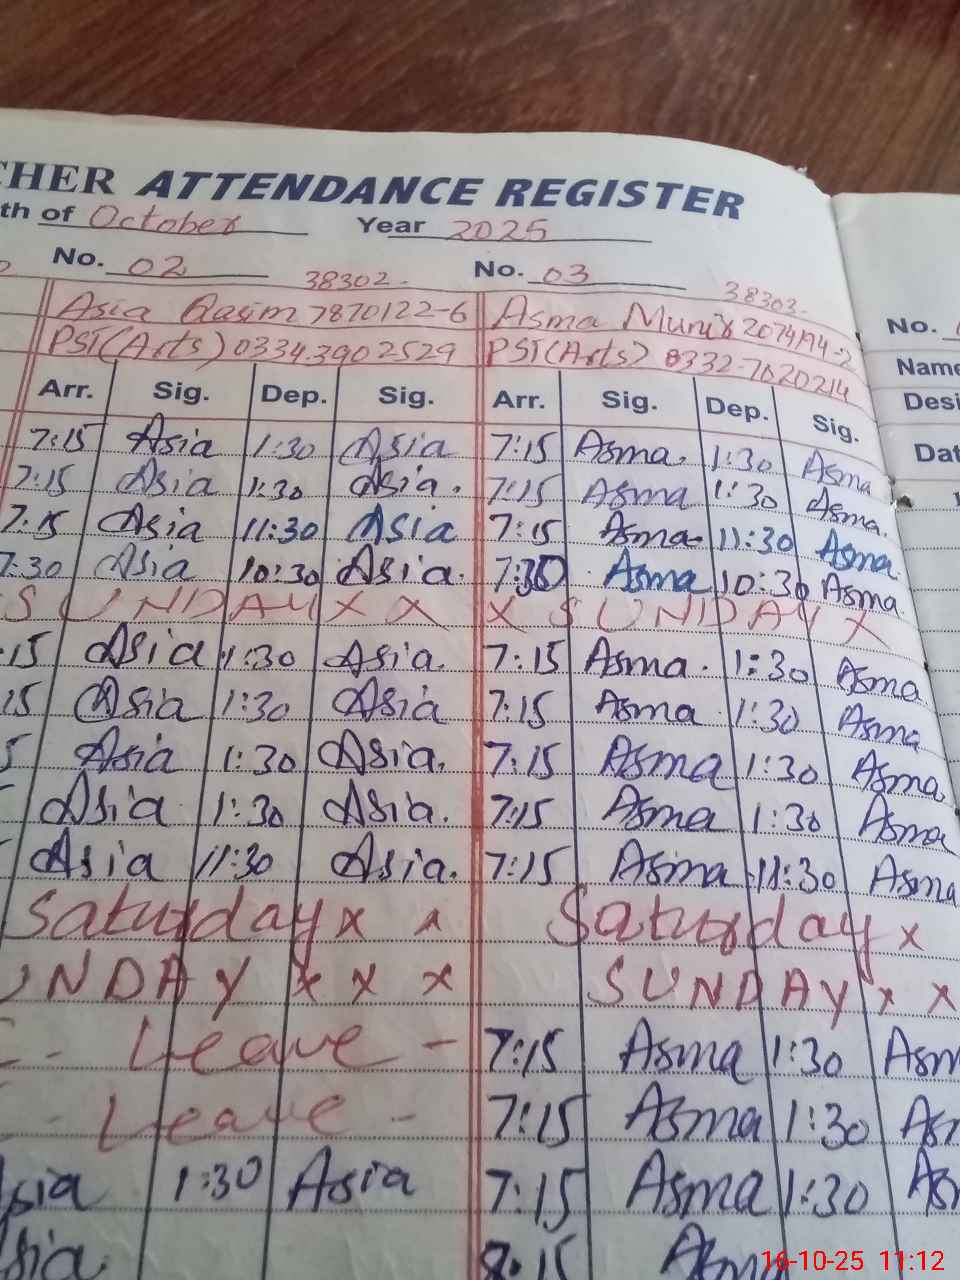 CHER ATTENDANCE REGISTER
th of October Year 2025
No. 02 38302. No. 03 38303.
Asia Qasim 7870122-6 Asma Munir 2074194-2 No.
PST(Arts) 03343902529 PST(Arts) 0332-7620214 Name
Arr. Sig. Dep. Sig. Arr. Sig. Dep. Sig. Desi
7:15 Asia 1:30 Asia 7:15 Asma. 1:30 Asma Dat
7:15 Asia 1:30 Asia. 7:15 Asma 1:30 Asma.
7:15 Asia 11:30 Asia 7:15 Asma 11:30 Asma
7:30 Asia 10:30 Asia. 7:30 Asma 10:30 Asma.
SUNDAY x x x SUNDAY x
:15 Asia 1:30 Asia 7:15 Asma. 1:30 Asma
15 Asia 1:30 Asia 7:15 Asma 1:30 Asma
5 Asia 1:30 Asia. 7:15 Asma 1:30 Asma
Asia 1:30 Asia. 7:15 Asma 1:30 Asma
Asia 11:30 Asia. 7:15 Asma 11:30 Asma
Saturday x x Saturday x
UNDAY x x x SUNDAY x x
- Leave - 7:15 Asma 1:30 Asm
- Leave - 7:15 Asma 1:30 As
sia 1:30 Asia 7:15 Asma 1:30 As
sia 8:15 Asm
16-10-25 11:12